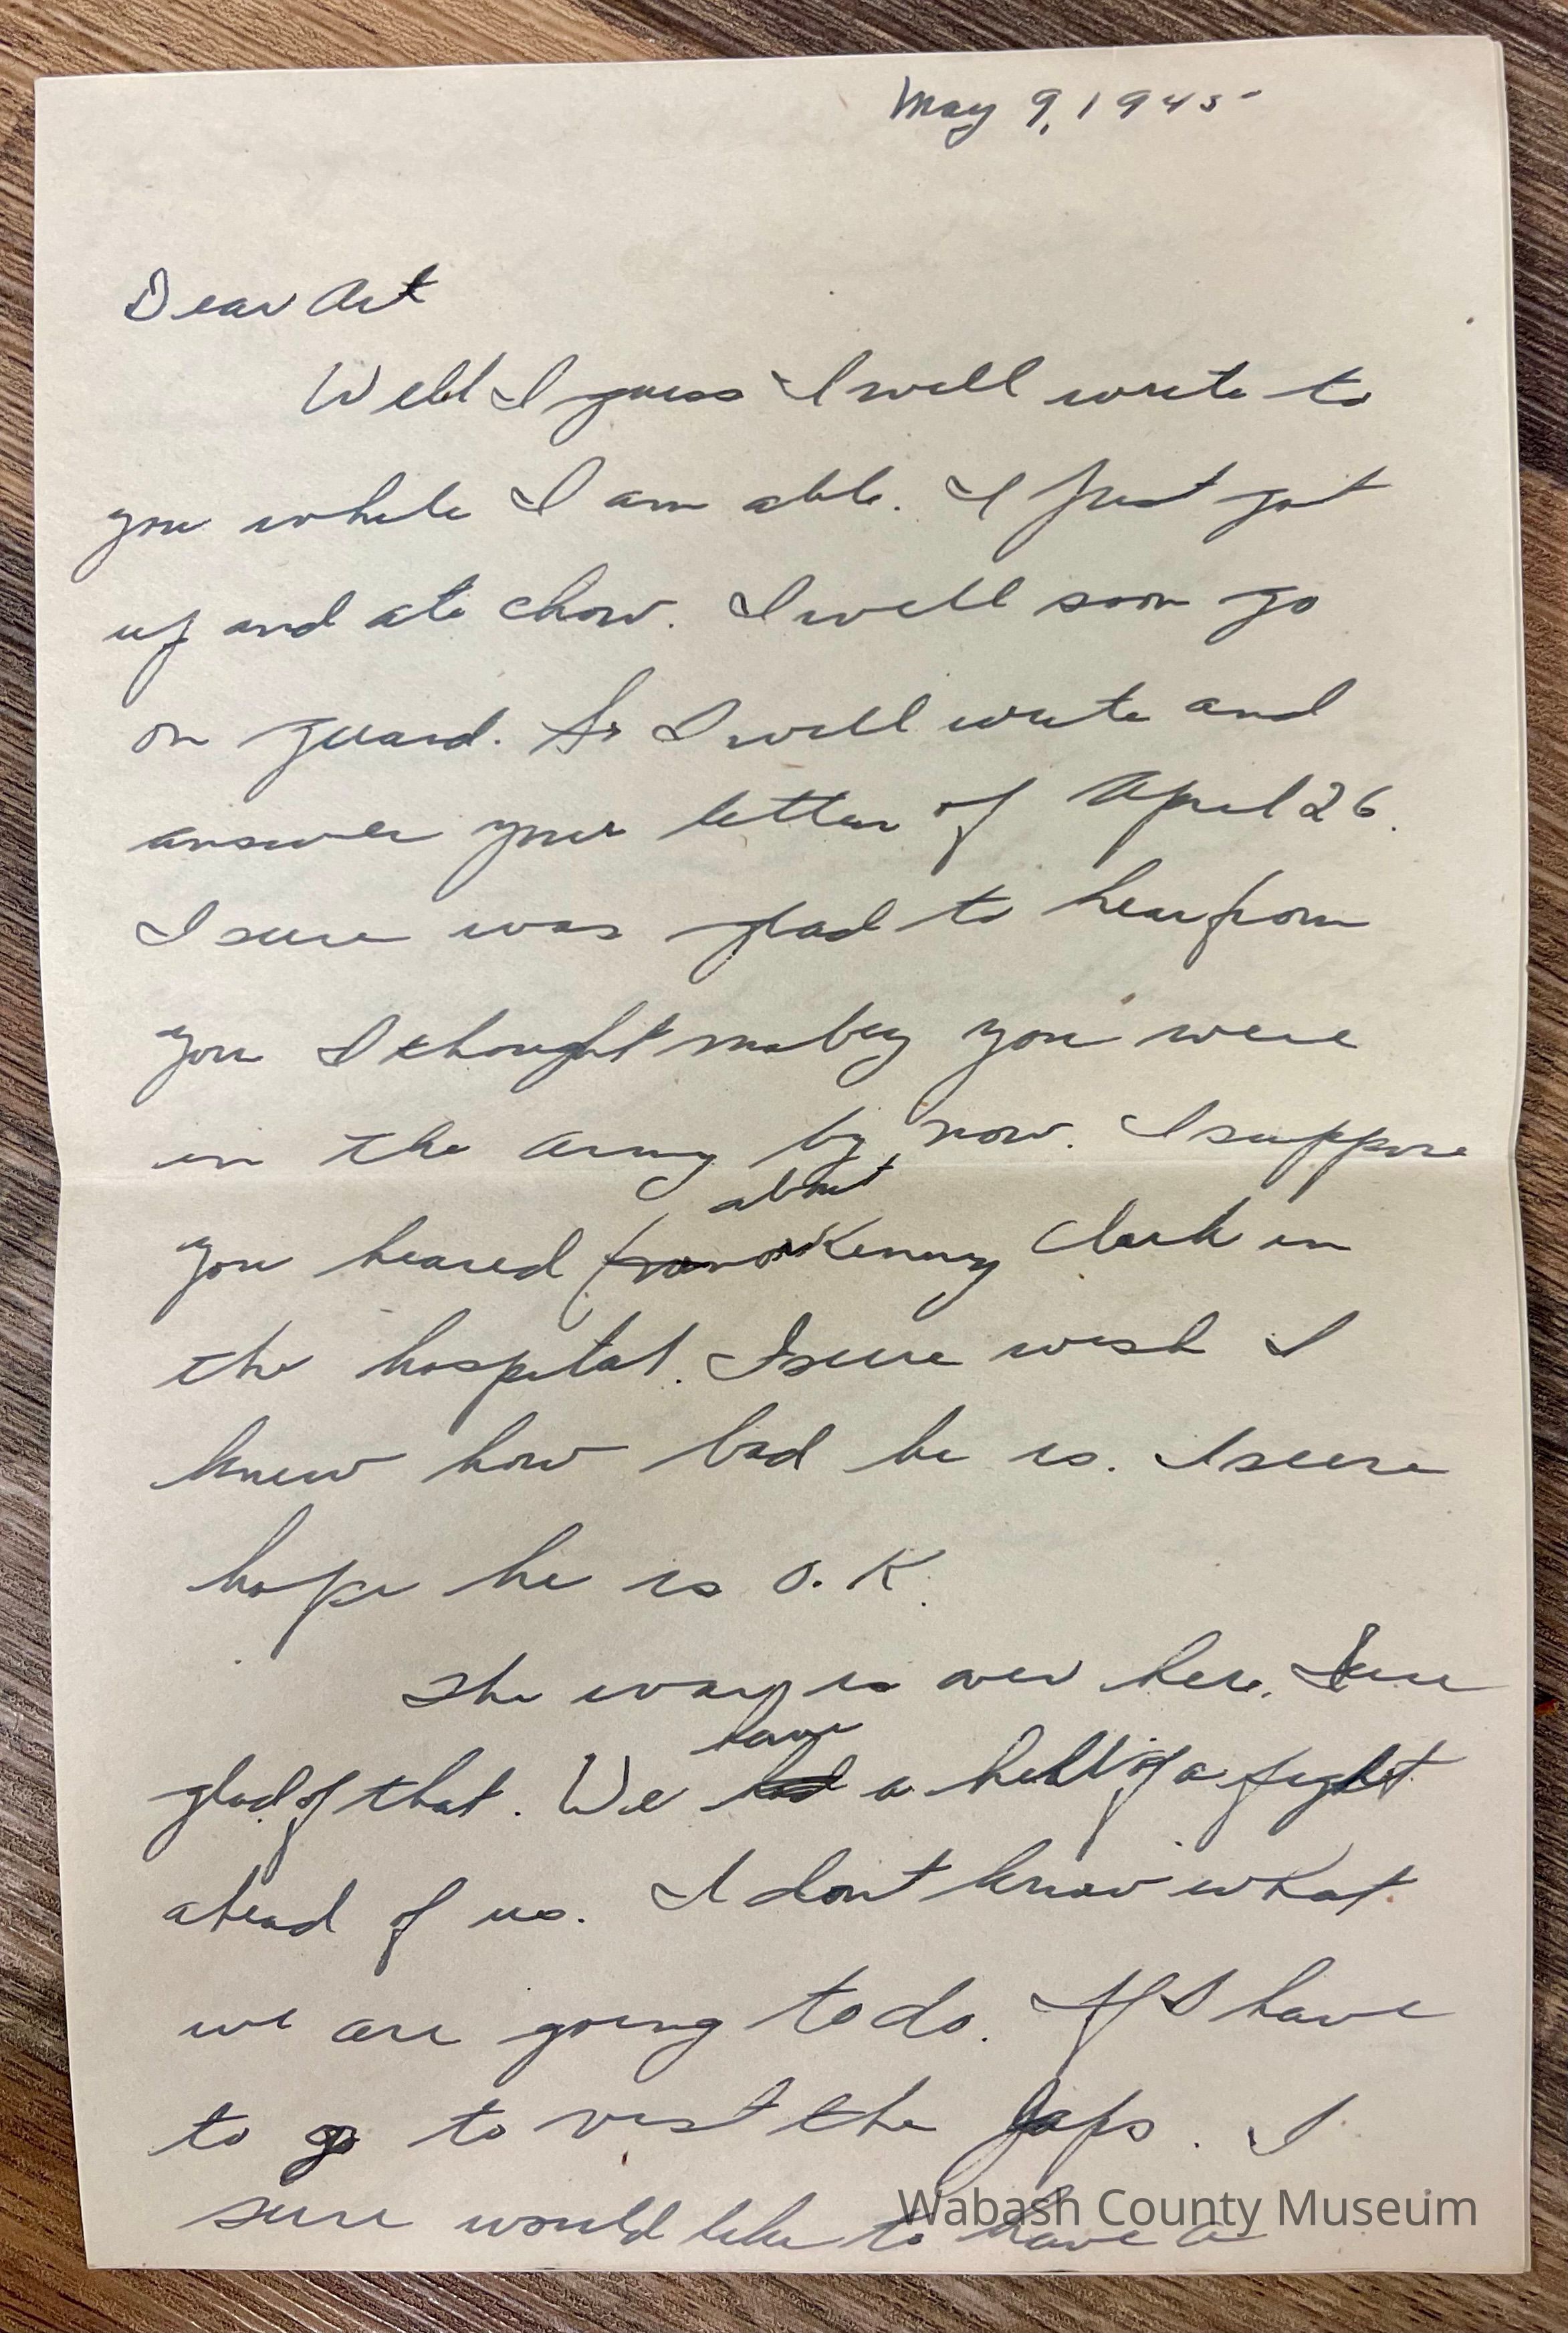 May 9, 1945
Dear Art
Well I guess I will write to
you while I am able. I just got
up and ate chow. I will soon go
on guard. So I will write and
answer your letter of April 26.
I sure was glad to hear from
you I thought mabey you were
in the army by now. I suppose
about
you heared from Kenny Clark in
the hospital. I sure wish I
knew how bad he is. I sure
hope he is O.K.
The war is over here. Sure
have
glad of that. We had a hell of a fight
ahead of us. I dont know what
we are going to do. If I have
to go to visit the Japs. I
sure would like to have a
Wabash County Museum